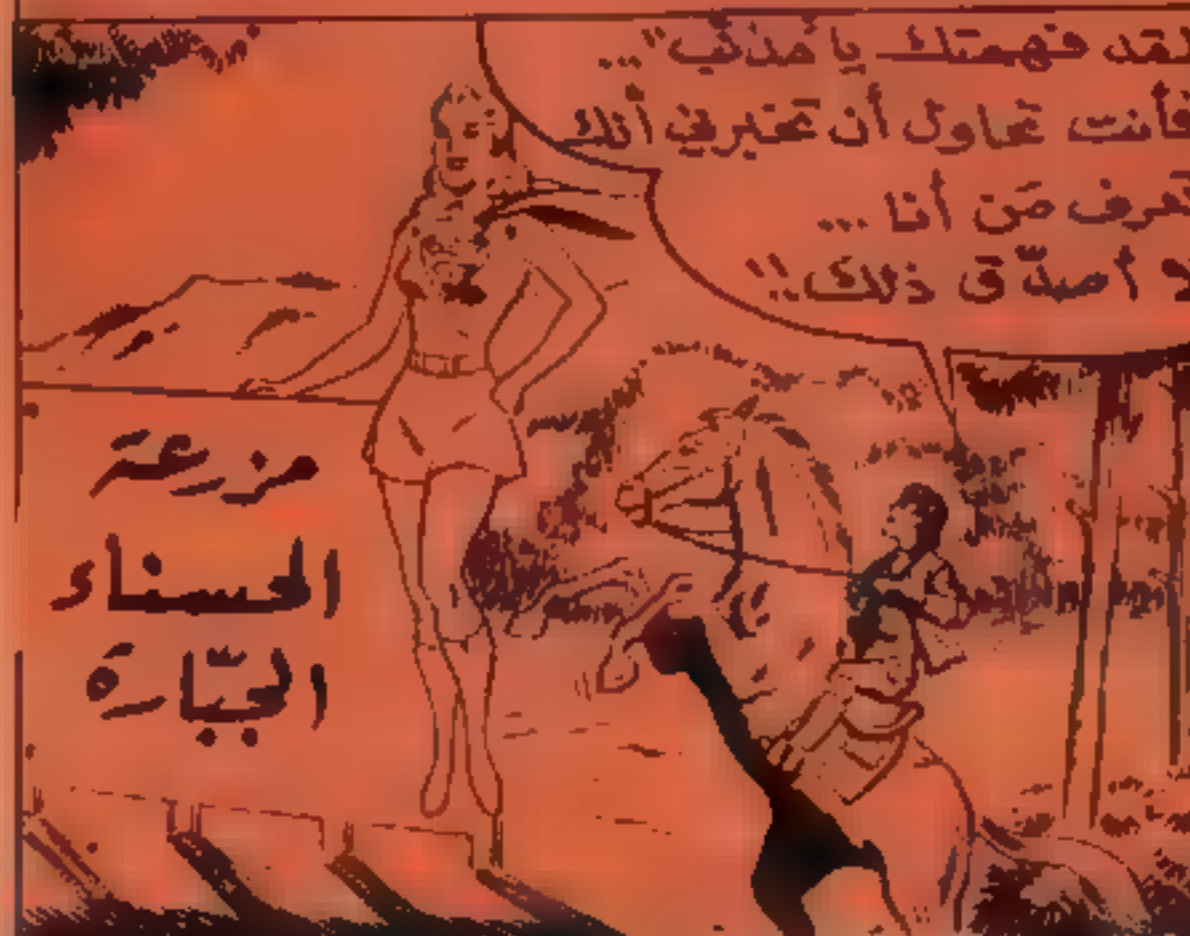 لقد فهمتك يا مُذنّب"...
فأنت تحاول أن تخبرني أنك
تعرف مَن أنا ...
لا أصدّق ذلك!!
مزرعة
الحسناء
الجبّارة